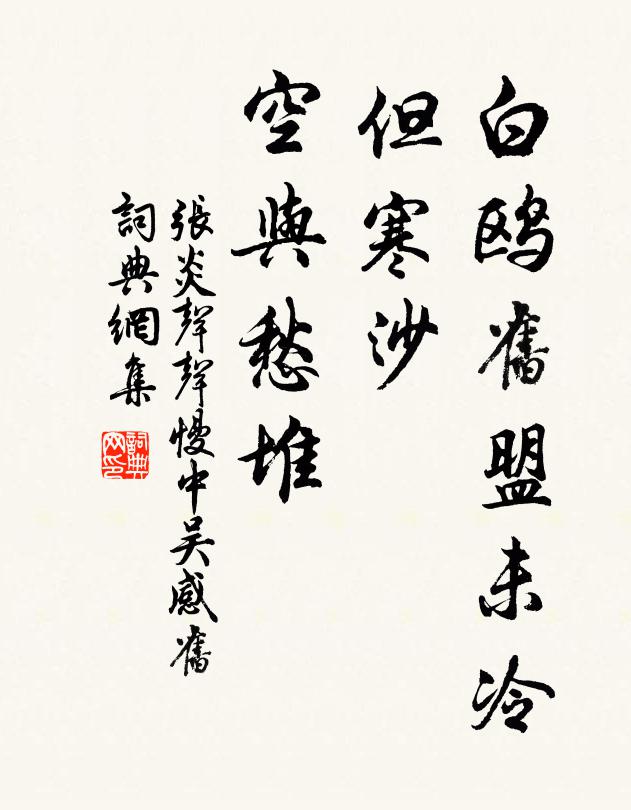 白鸥舊盟未冷
但寒沙
空與愁堆
張炎聲聲慢中吴感舊
詞典網集
詞典网印